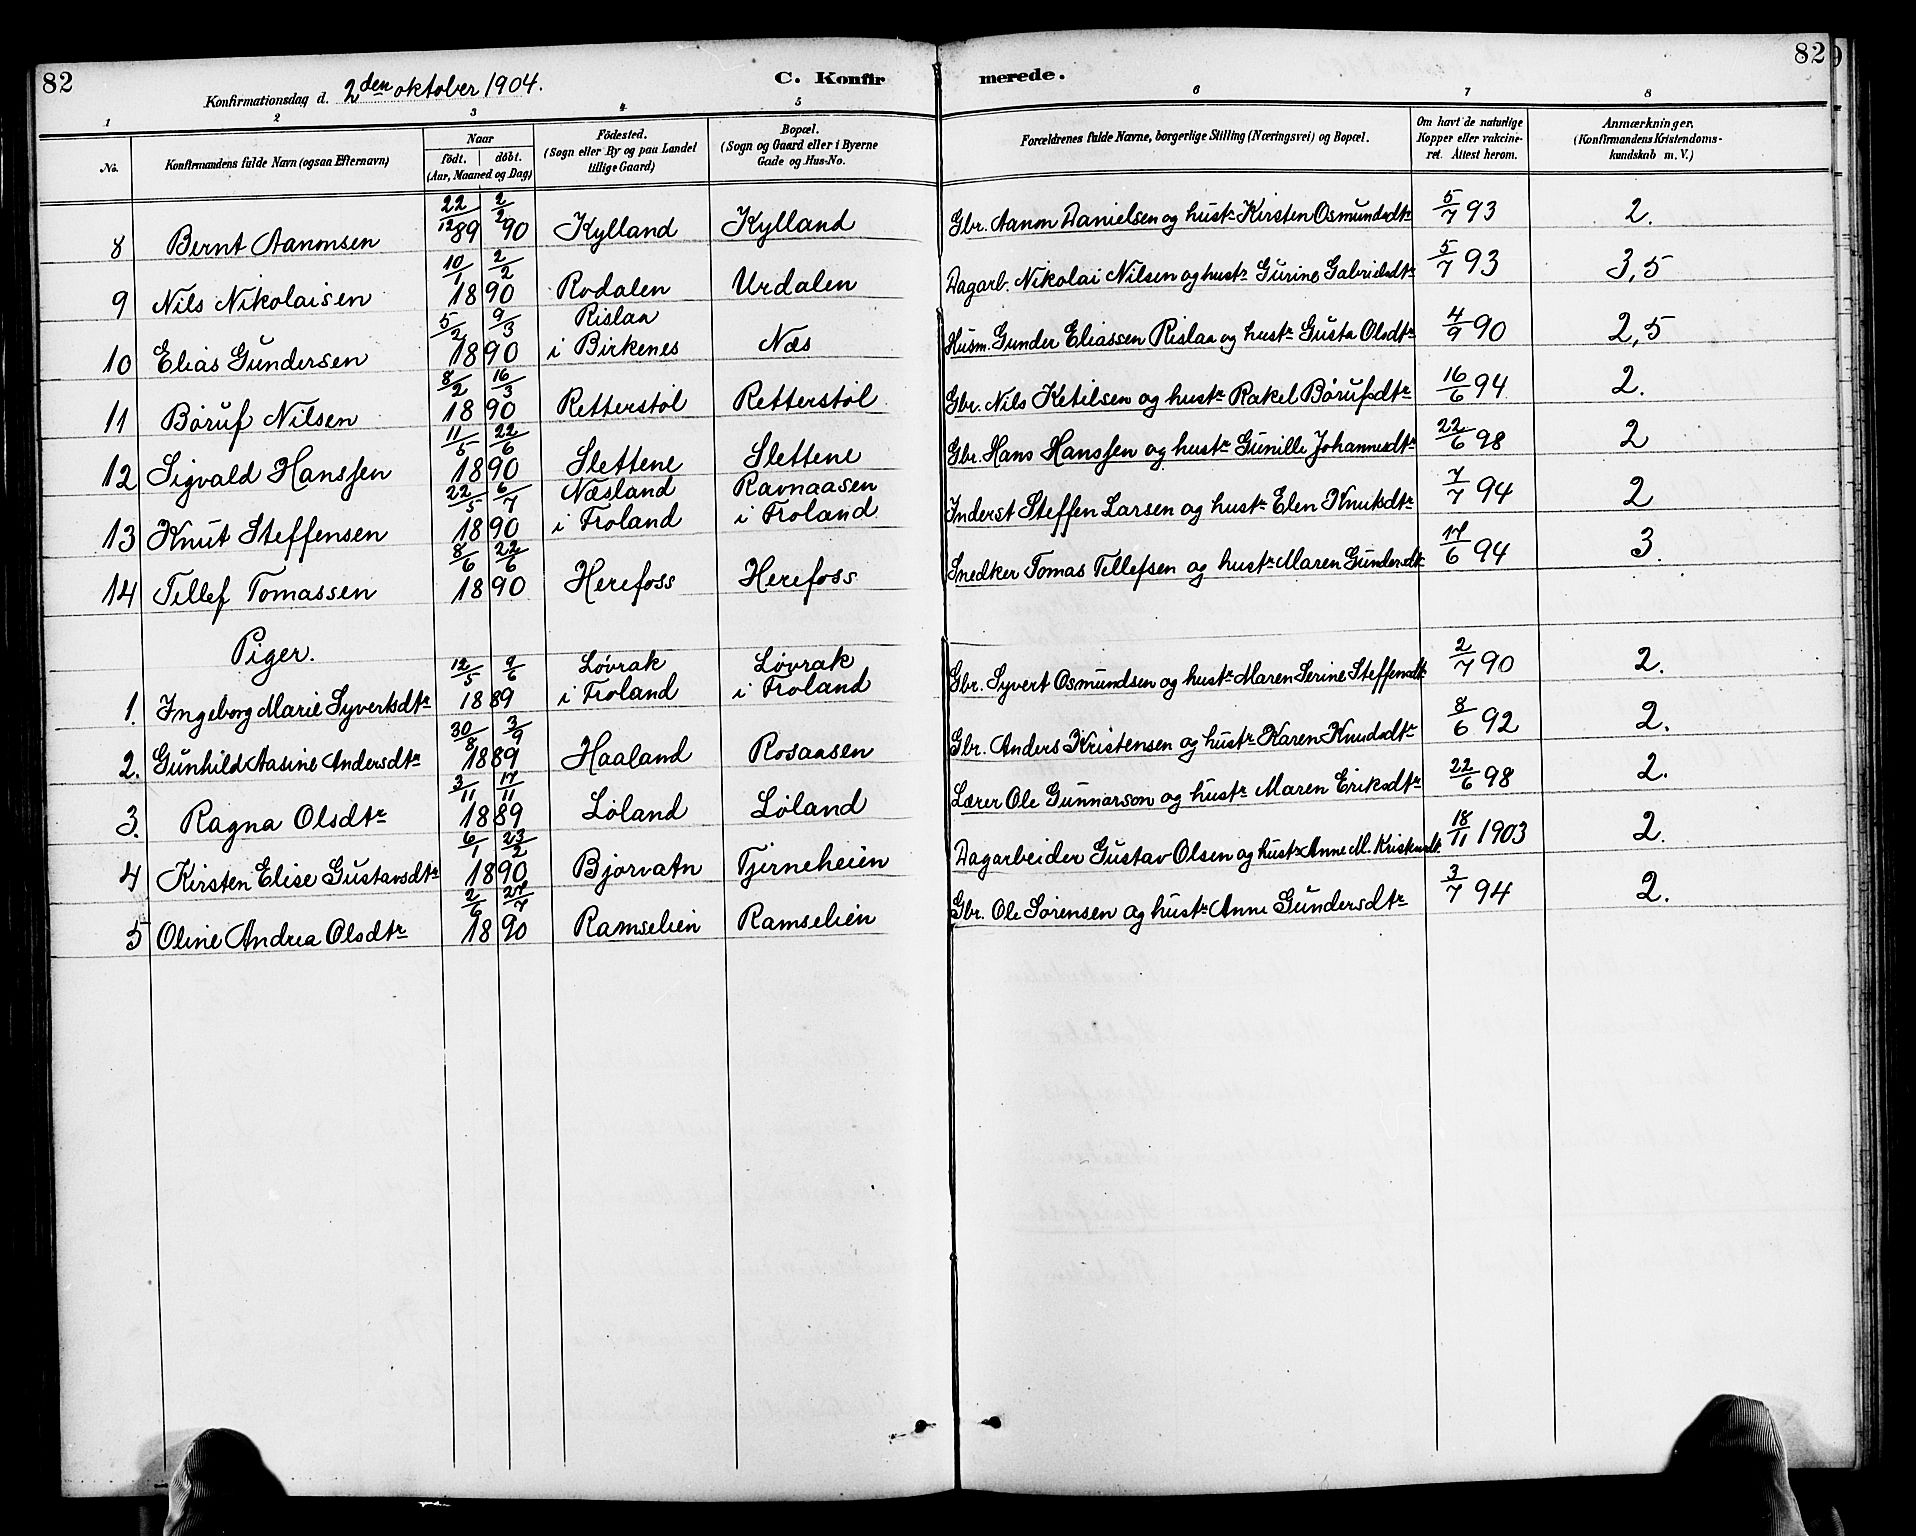 82
Konfirmationsdag d. 2den oktober 1904.
C. Konfir merede.
82
1 2 3 4 5 6 7 8
No. Konfirmandens fulde Navn (ogsaa Efternavn) Naar födt. döbt. (Aar, Maaned og Dag) Födested. (Sogn eller By og paa Landet tillige Gaard) Bopæl. (Sogn og Gaard eller i Byerne Gade og Hus-No. Forældrenes fulde Navne, borgerlige Stilling (Næringsvei) og Bopæl. Om havt de naturlige Kopper eller vakcineret. Attest herom. Anmærkninger, (Konfirmandens Kristendomskundskab m. V.)
8 Bernt Aanonsen 22/12 89 2/2 90 Kylland Kylland Gbr. Aanon Danielsen og hustr Kirsten Osmundsdtr 5/7 93 2.
9 Nils Nikolaisen 10/1 2/2 1890 Rodalen Urdalen Dagarb. Nikolai Nilsen og hustr Gurine Gabrielsdtr 5/7 93 3,5
10 Elias Gundersen 5/2 9/3 1890 Rislaa i Birkenes Næs Husm. Gunder Eliassen Rislaa og hustr Gusta Olsdtr 4/9 90 2,5
11 Böruf Nilsen 8/2 16/3 1890 Retterstöl Retterstöl Gbr. Nils Ketilsen og hustr Rakel Börufsdtr 16/6 94 2.
12 Sigvald Hanssen 11/5 22/6 1890 Slettene Slettene Gbr. Hans Hanssen og hustr Gunille Johannesdtr 22/6 98 2
13 Knut Steffensen 22/5 6/7 1890 Næsland i Froland Ravnaasen i Froland Inderst Steffen Larsen og hustr Elen Knutsdtr 7/7 94 2
14 Tellef Tomassen 8/6 22/6 1890 Herefoss Herefoss Snedker Tomas Tellefsen og hustr Maren Gundersdt 17/6 94 3.
Piger.
1. Ingeborg Marie Syvertsdtr 12/5 9/6 1889 Lövrak i Froland Lövrak i Froland Gbr. Syvert Osmundsen og hustr Maren Serine Steffensdt 2/7 90 2.
2. Gunhild Aasine Andersdtr 30/8 3/9 1889 Haaland Rosaasen Gbr. Anders Kristensen og hustr Karen Knudsdtr 8/6 92 2.
3. Ragna Olsdtr 3/11 17/11 1889 Löland Löland Lærer Ole Gunnarson og hustr Maren Eriksdtr 22/6 98 2.
4 Kirsten Elise Gustavsdtr 6/1 23/2 1890 Bjorvatn Tjirneheien Dagarbeider Gustav Olsen og hustr Anne M. Kristensdt 18/11 1903 2.
5 Oline Andrea Olsdtr 2/6 27/7 1890 Ramselien Ramselien Gbr. Ole Sörensen og hustr Anne Gundersdtr 3/7 94 2.